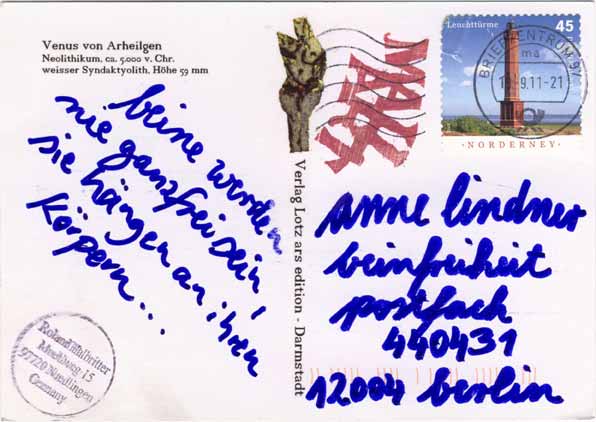 Venus von Arheilgen
Neolithikum, ca. 5.000 v. Chr.
weisser Syndaktyolith, Höhe 59 mm
beine werden
nie ganz frei sein,
sie hängen an ihren
Körpern...
Roland Halbritter
15
97720 Nüdlingen
Germany
Verlag Lotz ars edition - Darmstadt
MAIL
ART
Leuchttürme 45
BRIEFZENTRUM 97
ma
9.11-21
·NORDERNEY·
anne lindner
beinfreiheit
postfach
440431
12004 berlin